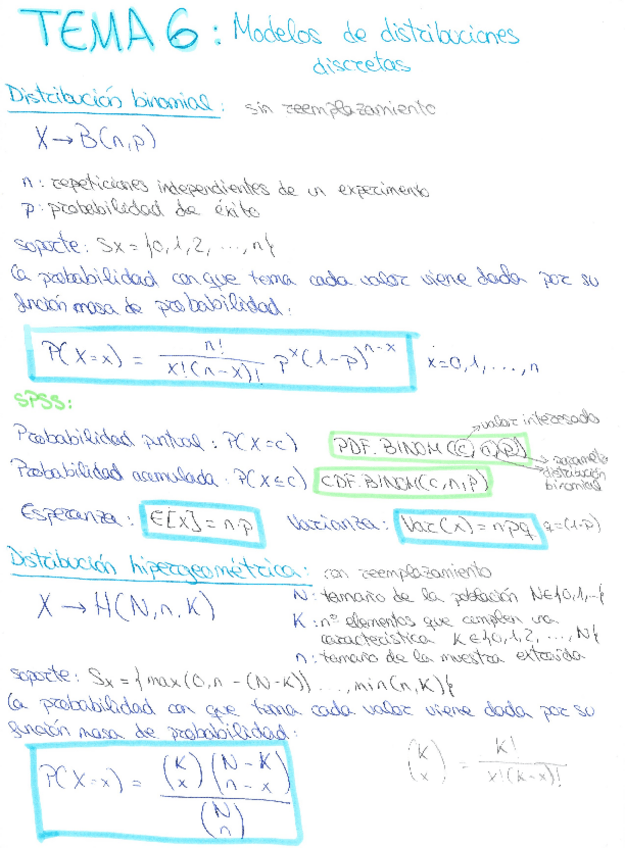 TEMA 6: Modelos de distribuciones
discretas
Distribución binomial: sin reemplazamiento
X → B(n,p)
n: repeticiones independientes de un experimento
p: probabilidad de éxito
soporte: Sx = {0, 1, 2, ..., n}
La probabilidad con que toma cada valor viene dada por su
función masa de probabilidad:
P(X=x) = n! / x!(n-x)! p^x (1-p)^{n-x} x=0,1,...,n
SPSS:
valor interesado
Probabilidad puntual: P(X=c) PDF.BINOM(c, n, p)
distribución
binomial
Probabilidad acumulada: P(X≤c) CDF.BINOM(c,n,p)
Esperanza: E[X] = n·p Varianza: Var(X) = npq q=(1-p)
Distribución hipergeométrica: con reemplazamiento
X → H(N,n,K)
N: tamaño de la población N∈{0,1,...}
K: nº elementos que cumplen una
característica K∈{0,1,2,...,N}
n: tamaño de la muestra extraída
soporte: Sx = {max(0, n-(N-K)), ..., min(n,K)}
La probabilidad con que toma cada valor viene dada por su
función masa de probabilidad:
P(X=x) = (K x)(N-K n-x) / (N n)
(K x) = K! / x!(K-x)!